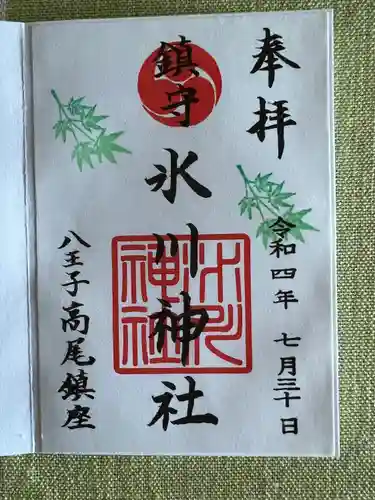 奉拝
令和四年 七月三十日
鎮守 氷川神社
氷川神社
八王子高尾鎮座